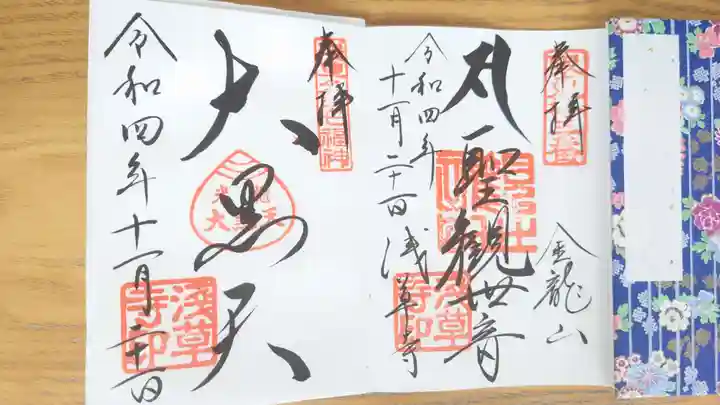 奉拝
金龍山
聖観世音
浅草寺
令和四年
十一月二十一日
奉拝
大黒天
令和四年十一月二十一日
浅草寺印
浅草寺印